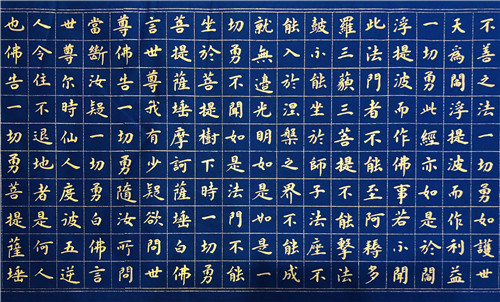 不善之法一切勇如護世
天爲閻浮提波而作利益
一切勇此經亦如是於閻
浮提波而作佛事若不聞
此法門者不能至阿耨多
羅三藐三菩提不能擊法
皷不能坐於師子法座不
能入於涅槃之界不能成
就無邊光明如是如是一
切勇不聞如是法門不能
坐於菩提樹下時一切勇
菩提薩埵摩訶薩埵白佛
言世尊我有少疑欲問世
尊佛告一切勇隨汝所問
當斷汝疑一切勇白佛言
世尊尔時仙人度彼五逆
人令住不退地者是何人
也佛告一切勇菩提薩埵